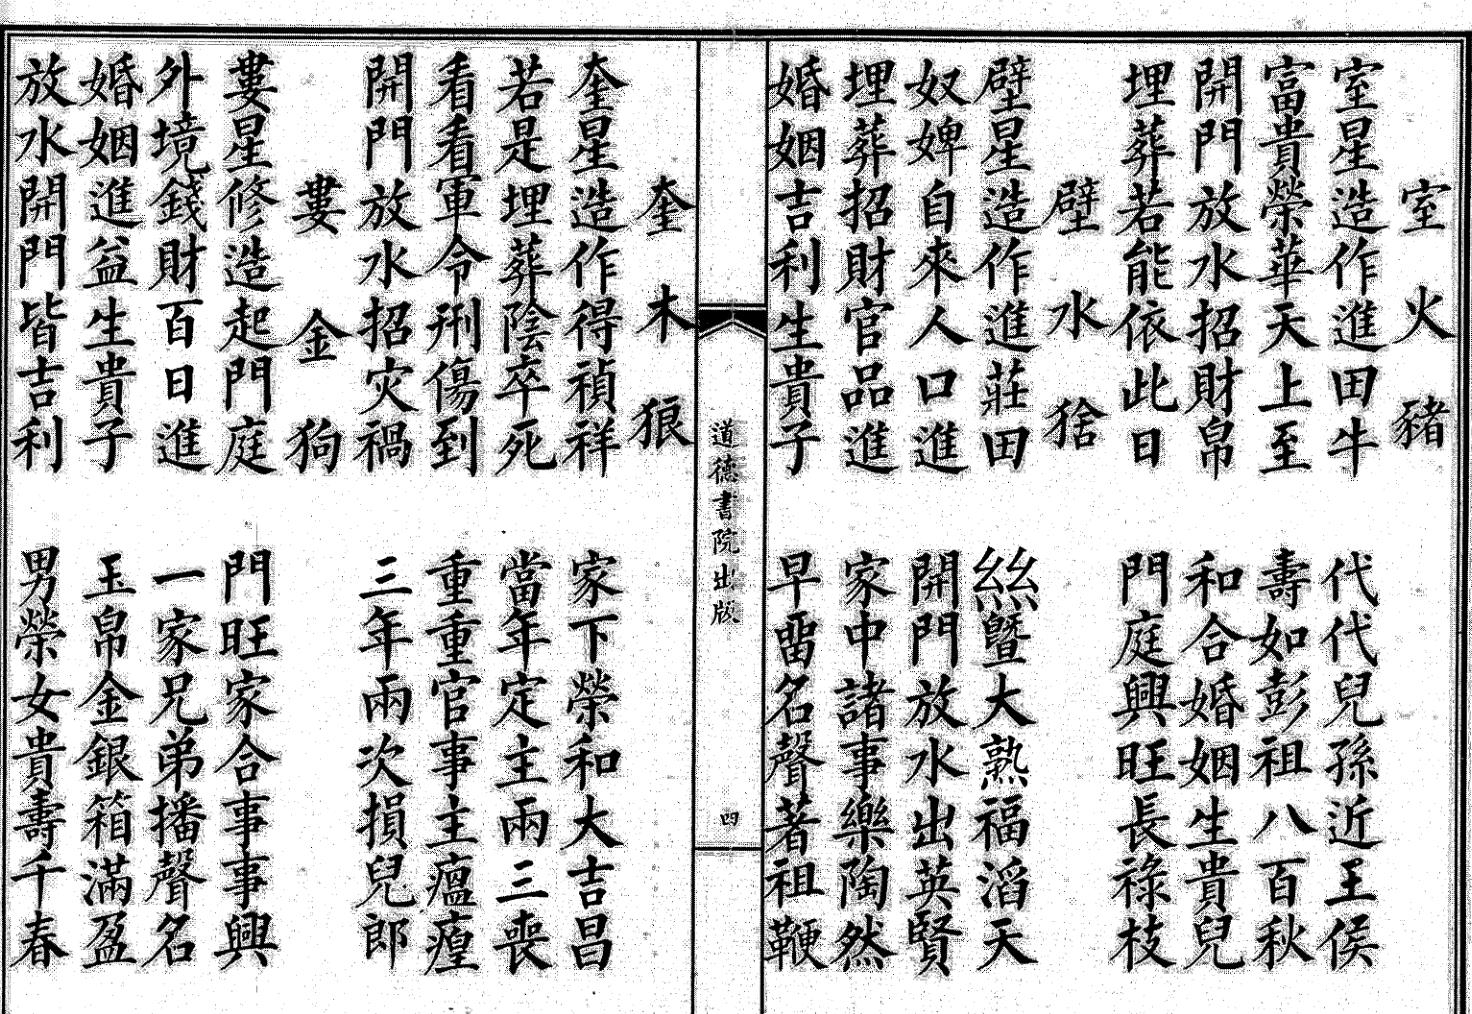 室火豬
室星造作進田牛　代代兒孫近王侯
富貴榮華天上至　壽如彭祖八百秋
開門放水招財帛　和合婚姻生貴兒
埋葬若能依此日　門庭興旺長祿枝
壁水㺄
壁星造作進莊田　絲蠶大熟福滔天
奴婢自來人口進　開門放水出英賢
埋葬招財官品進　家中諸事樂陶然
婚姻吉利生貴子　早畱名聲著祖鞭
道德書院出版
四
奎木狼
奎星造作得禎祥　家下榮和大吉昌
若是埋葬陰卒死　當年定主兩三喪
看看軍令刑傷到　重重官事主瘟㾮
開門放水招灾禍　三年兩次損兒郎
婁金狗
婁星修造起門庭　門旺家合事事興
外境錢財百日進　一家兄弟播聲名
婚姻進益生貴子　玉帛金銀箱滿盈
放水開門皆吉利　男榮女貴壽千春